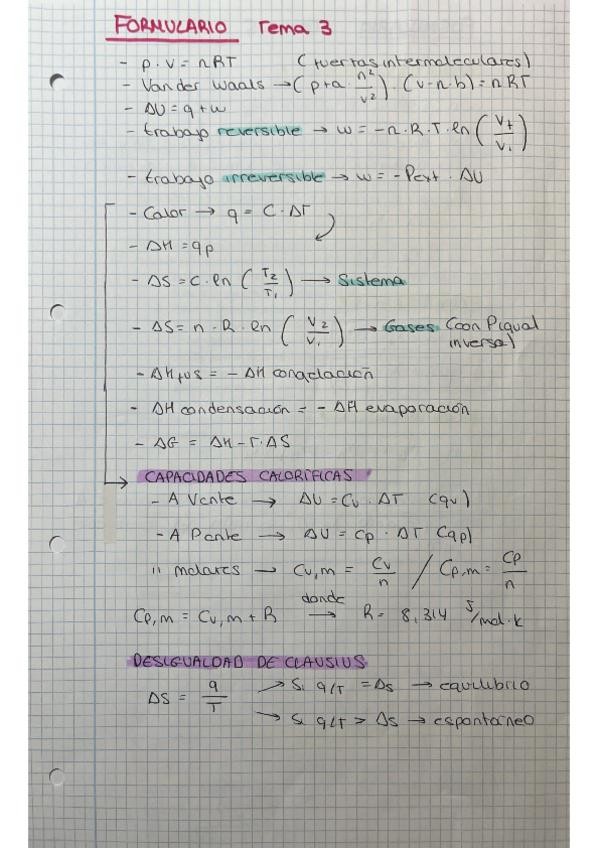 FORMULARIO Tema 3
- p · v = nRT (fuertas intermoleculares)
- Van der Waals → (p+a · n²/v²) · (v-n·b) = nRT
- ΔU = q + w
- trabajo reversible → w = -n · R · T · ln (Vf/Vi)
- trabajo irreversible → w = -Pext · ΔU
- Calor → q = C · ΔT
- ΔH = qp
- ΔS = C · ln (T2/T1) → Sistema
- ΔS = n · R · ln (V2/V1) → Gases (con P igual
inversa)
- ΔH fus = - ΔH congelación
- ΔH condensación = - ΔH evaporación
- ΔG = ΔH - T · ΔS
→ CAPACIDADES CALORÍFICAS
- A Vcnte → ΔU = Cv · ΔT (qv)
- A Pcnte → ΔU = Cp · ΔT (qp)
" molares → Cv,m = Cv/n / Cp,m = Cp/n
Cp,m = Cv,m + R donde → R = 8,314 J/mol·k
DESIGUALDAD DE CLAUSIUS
ΔS = q/T → Si q/T = Δs → equilibrio
→ Si q/T > Δs → espontáneo